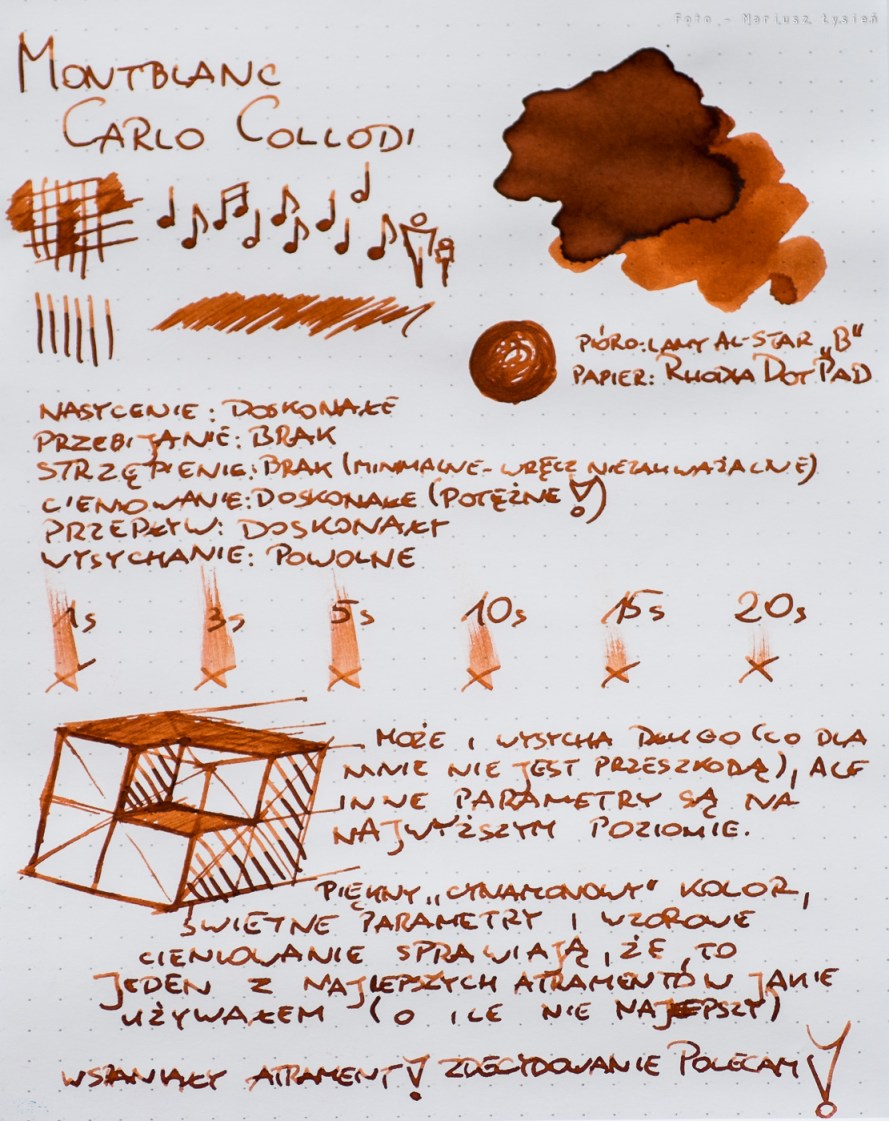 Foto - Mariusz Łysień
Montblanc
Carlo Collodi
Pióro: Lamy Al-Star „B"
Papier: Rhodia DotPad
Nasycenie: Doskonałe
Przebijanie: Brak
Strzępienie: Brak (minimalne - wręcz niezauważalne)
Cieniowanie: Doskonałe (potężne!)
Przepływ: Doskonały
Wysychanie: Powolne
1s 3s 5s 10s 15s 20s
Może i wysycha długo (co dla
mnie nie jest przeszkodą), ale
inne parametry są na
najwyższym poziomie.
Piękny „cynamonowy" kolor,
świetne parametry i wzorowe
cieniowanie sprawiają, że to
jeden z najlepszych atramentów jakie
używałem (o ile nie najlepszy)
Wspaniały atrament! Zdecydowanie Polecam!